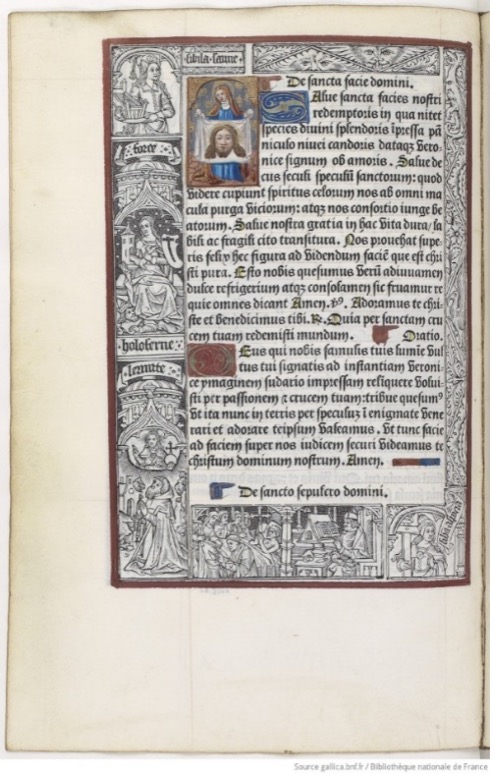 sibila samne.
De sancta facie domini.
Alue sancta facies nostri
redemptoris in qua nitet
species diuini splendoris ip̄ressa pā
niculo niuei candoris dataqz vero-
nice signum ob amoris. Salue de
cus seculi speculū sanctorum: quod
videre cupiunt spiritus celorum nos ab omni ma
cula purga viciorum: atqz nos consortio iunge be
atorum. Salue nostra gratia in hac vita dura/ la
bili ac fragili cito transitura. Nos prouehat supe-
ris felix hec figura ad videndum faciē que est chri
sti pura. Esto nobis quesumus verū adiuuamen
dulce refrigerium atqz consolamen sic fruamur re
quie omnes dicant Amen. v9. Adoramus te chri-
ste et benedicimus tibi. R. Quia per sanctam cru
cem tuam redemisti mundum. Oratio.
Eus qui nobis famulis tuis lumīe vul
tus tui signatis ad instantiam veroni
ce ymaginem sudario impressam relīquere volui-
sti per passionem & crucem tuam: tribue quesum9
vt ita nunc in terris per speculuz ī enigmate vene
rari et adorare teipsum valeamus. Vt tunc facie
ad faciem super nos iudicem securi videamus te
christum dominum nostrum. Amen.
De sancto sepulcro domini.
force
holoferne
Source gallica.bnf.fr / Bibliothèque nationale de France